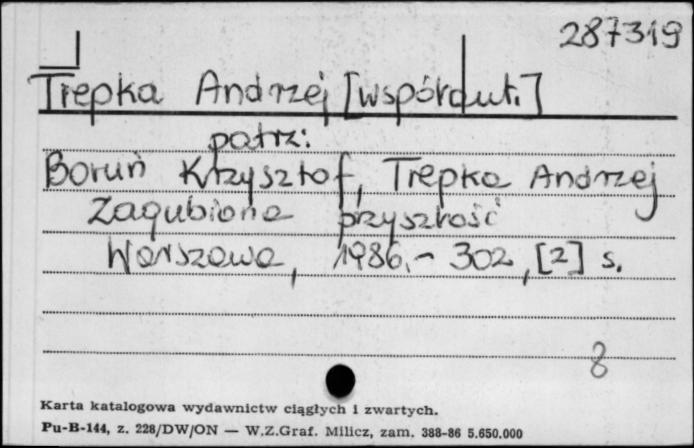 287319
Trepka Andrzej [współaut.]
patrz:
Boruń Krzysztof, Trepka Andrzej
Zagubiona przyszłość
Warszawa, 1986.- 302, [2] s.
8
Karta katalogowa wydawnictw ciągłych i zwartych.
Pu-B-144, z. 228/DW/ON — W.Z.Graf. Milicz, zam. 388-86 5.650.000